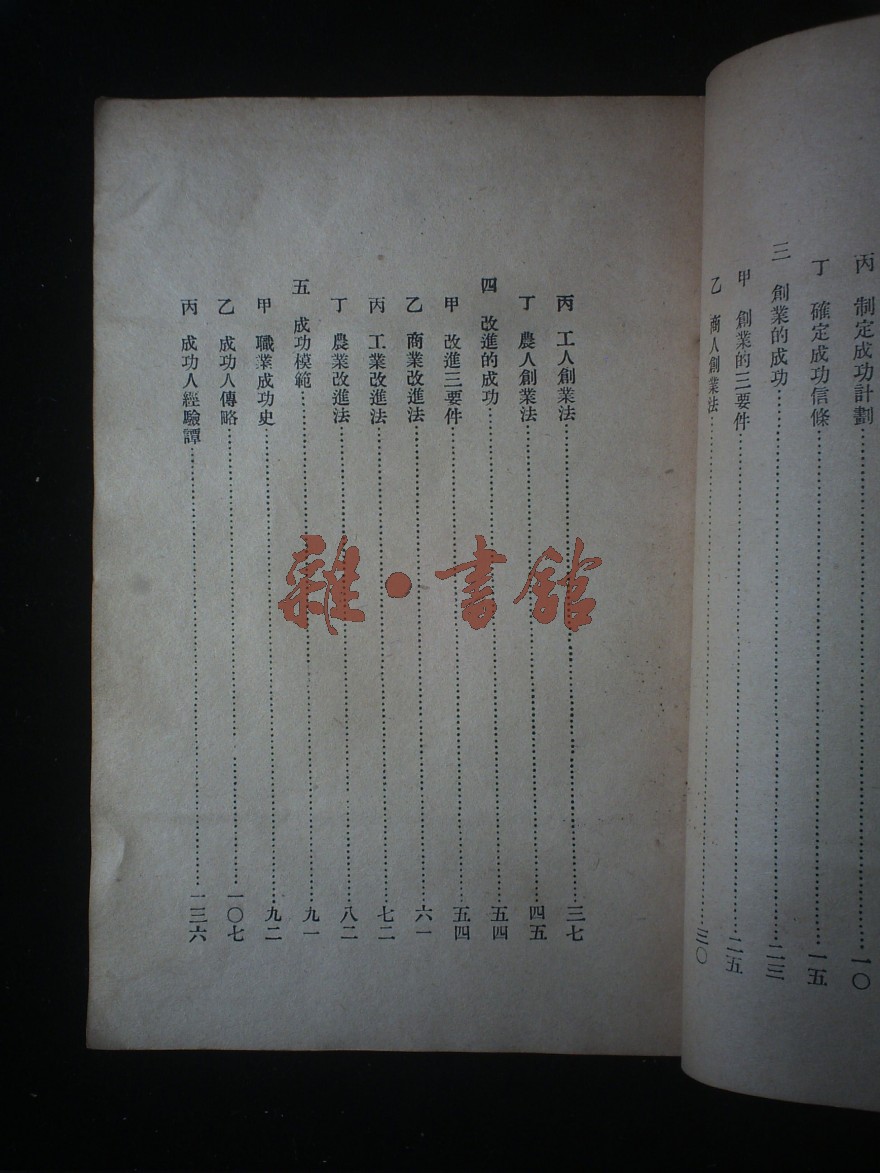 丙 制定成功計劃 一〇
丁 確定成功信條 一五
三 創業的成功 二三
甲 創業的三要件 二五
乙 商人創業法 三〇
丙 工人創業法 三七
丁 農人創業法 四五
四 改進的成功 五四
甲 改進三要件 五四
乙 商業改進法 六一
丙 工業改進法 七二
丁 農業改進法 八二
五 成功模範 九一
甲 職業成功史 九二
乙 成功人傳略 一〇七
丙 成功人經驗譚 一三六
雜·書館